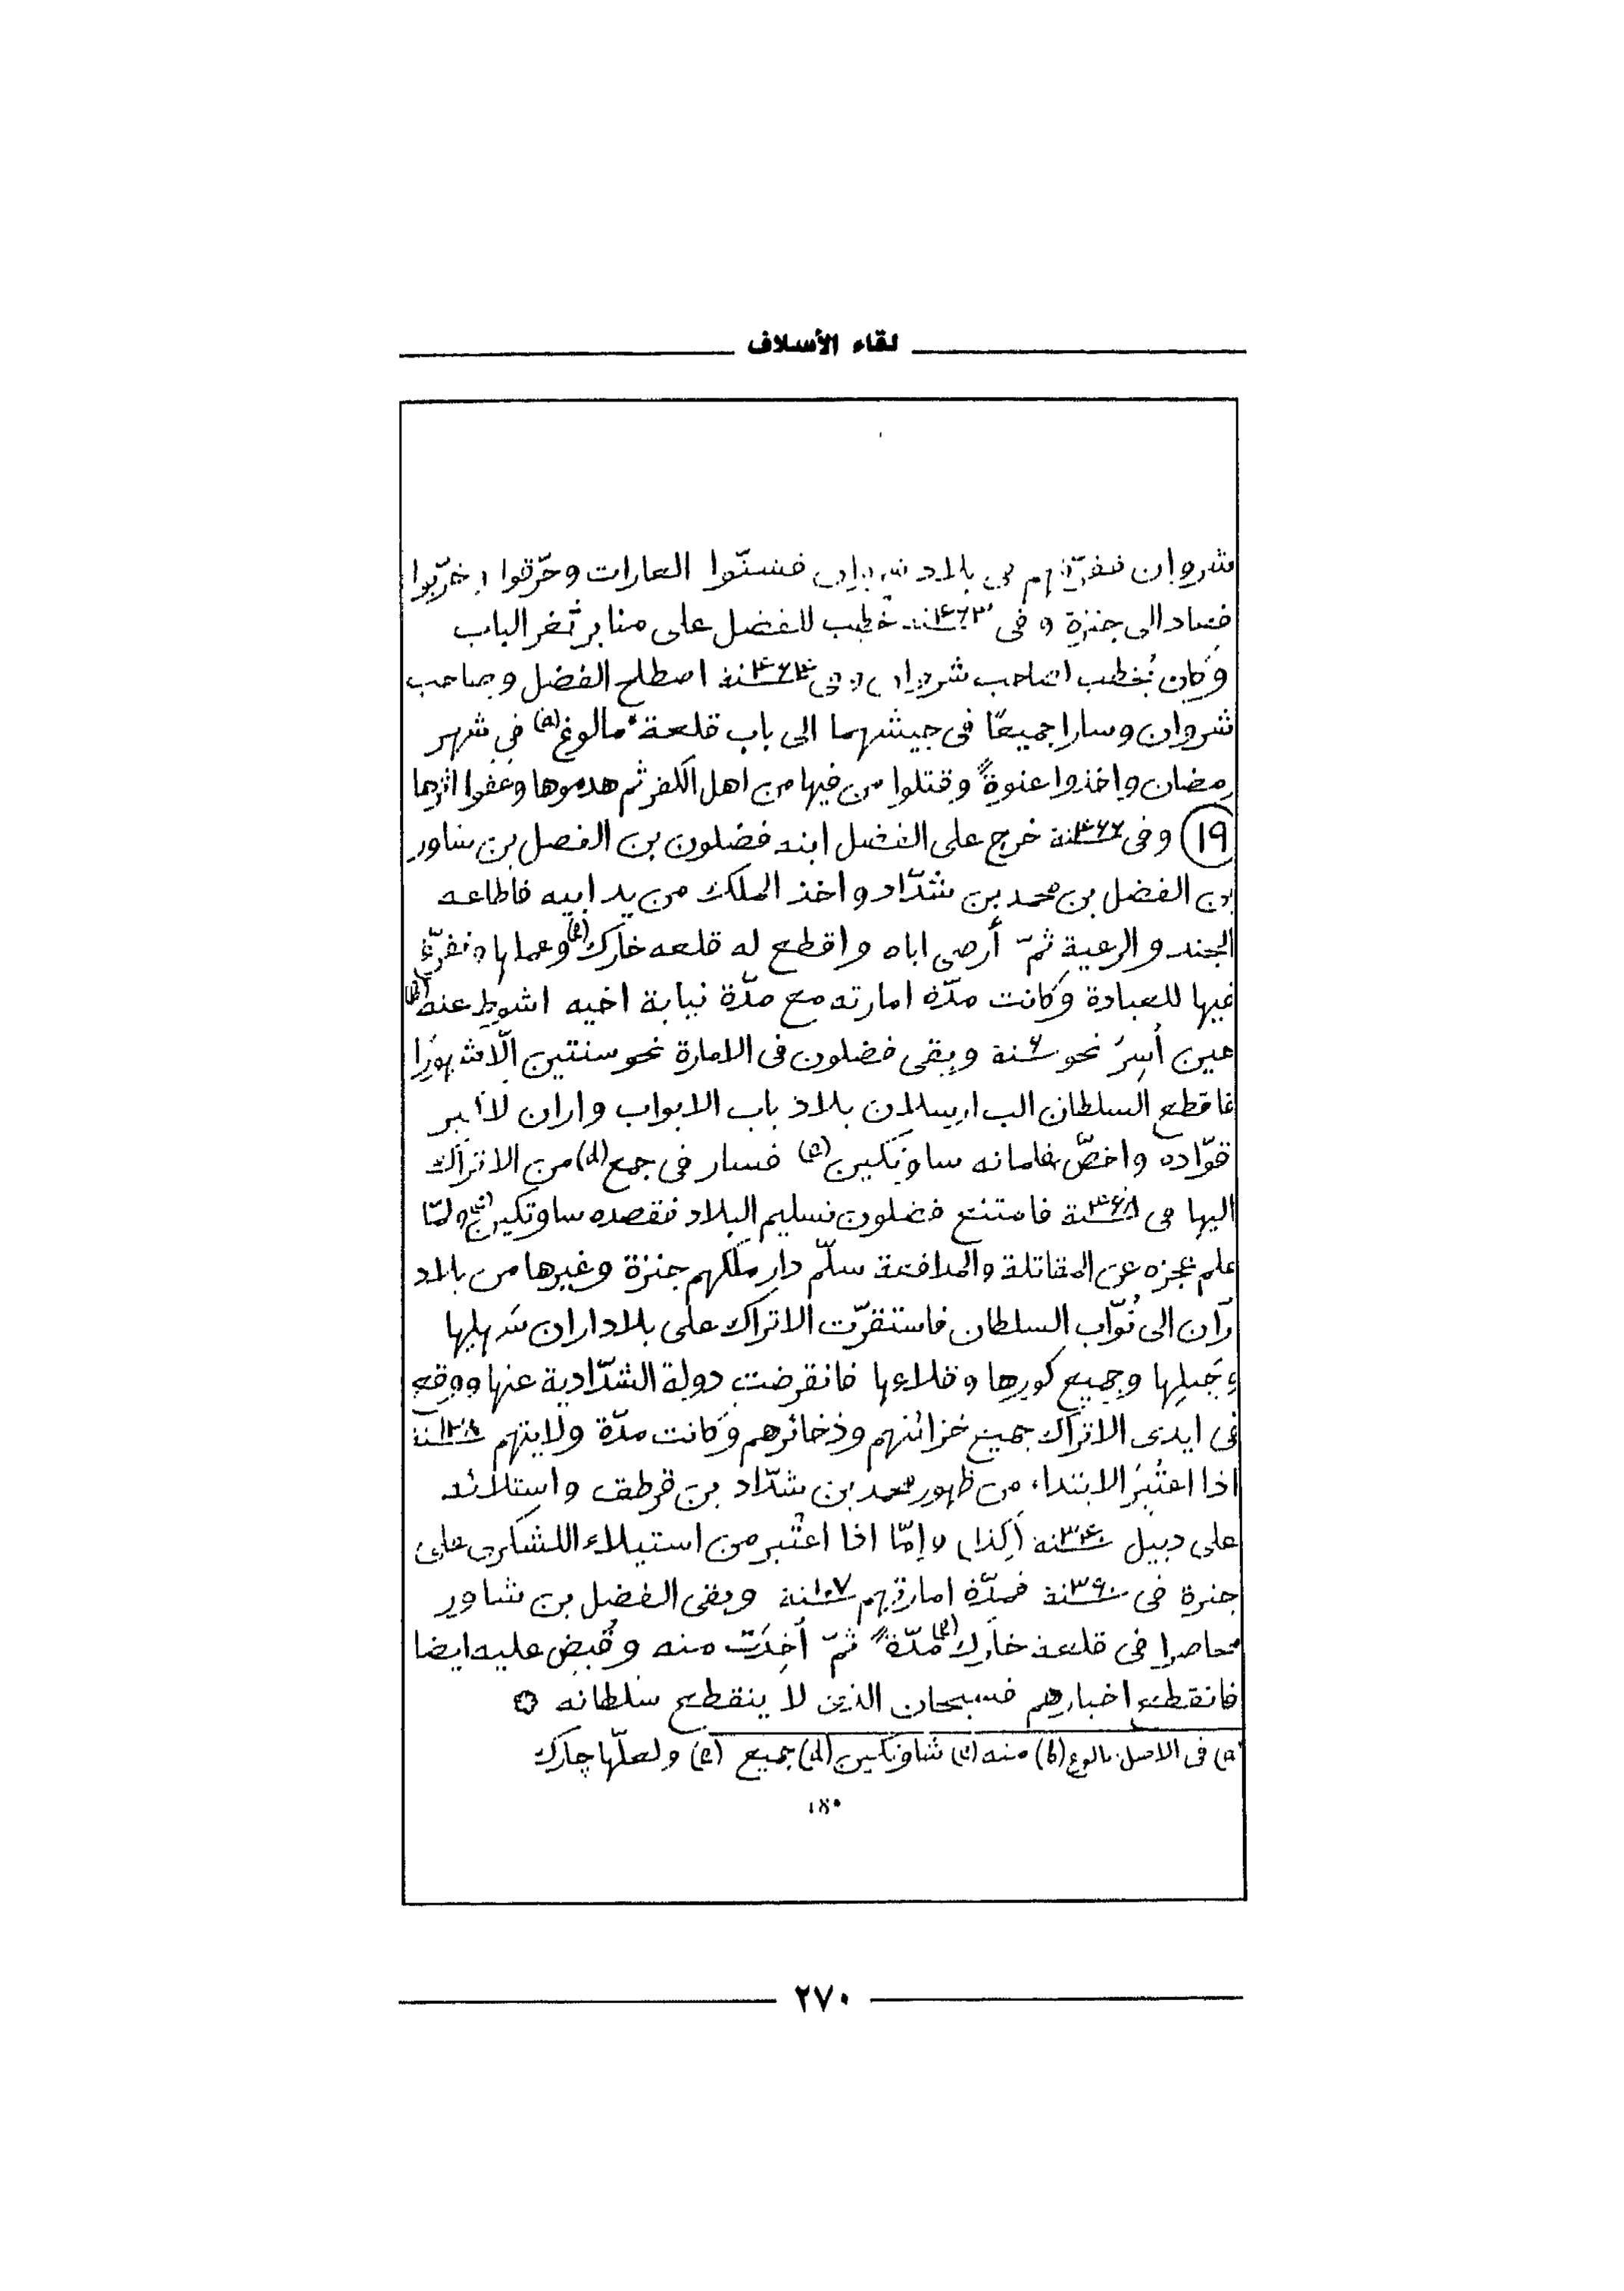 لقاء الأسلاف
شروان فشنّوا الغارات وحرّقوا وخرّبوا
فعاد الى جنزة وفى سنة ٤٦٣ خُطب للفضل على منابر ثغر الباب
وكان يُخطب لصاحب شروان وفى سنة ٤٦٤ اصطلح الفضل وصاحب
شروان وسارا جميعًا فى جيشهما الى باب قلعة مالوغ (a) فى شهر
رمضان واخذوا عنوةً وقتلوا من فيها من اهل الكفر ثم هدموها وعفوا اثرها
(١٩) وفى سنة ٤٦٦ خرج على الفضل ابنه فضلون بن الفضل بن شاور
بن الفضل بن محمد بن شدّاد واخذ الملك من يد ابيه فاطاعه
الجند والرعية ثمّ أرضى اباه واقطع له قلعه خارك (e) وعملها وتفرّغ
فيها للعبادة وكانت مدّة امارته مع مدّة نيابة اخيه اشوط عنه (b)
حين أُسِرَ نحو سنة ٦ وبقى فضلون فى الامارة نحو سنتين الّا شهورًا
فاقطع السلطان الب ارسلان بلاد باب الابواب واران لأكبر
قوّاده واخصّ غلمانه ساوتكين (c) فسار فى جمع (d) من الاتراك
اليها فى سنة ٤٦٨ فامتنع فضلون تسليم البلاد فقصده ساوتكين (c) ولمّا
علم عجزه عن المقاتلة والمدافعة سلّم دار ملكهم جنزة وغيرها من بلاد
رّان الى نُوّاب السلطان فاستقرّت الاتراك على بلاد اران سهلها
وجبلها وجميع كورها وقلاعها فانقرضت دولة الشدّادية عنها ووقع
فى ايدى الاتراك جميع خزائنهم وذخائرهم وكانت مدّة ولايتهم سنة ١٢٨
اذا اعتُبِرَ الابتداء من ظهور محمد بن شدّاد بن قرطق واستلائه
على دبيل سنة ٣٤٠ [كذا] وإمّا اذا اعتُبر من استيلاء اللشكرى على
جنزة فى سنة ٣٦٠ فمدّة امارتهم سنة ١٠٧ وبقى الفضل بن شاور
محاصرا فى قلعة خارك (e) مدّةً ثمّ أُخِذَت منه وقُبض عليه ايضا
فانقطع اخبارهم فسبحان الذى لا ينقطع سلطانه
(a) فى الاصل: بالوغ (b) منه (c) شاوتكين (d) جميع (e) ولعلّها چارك
٢٧٠